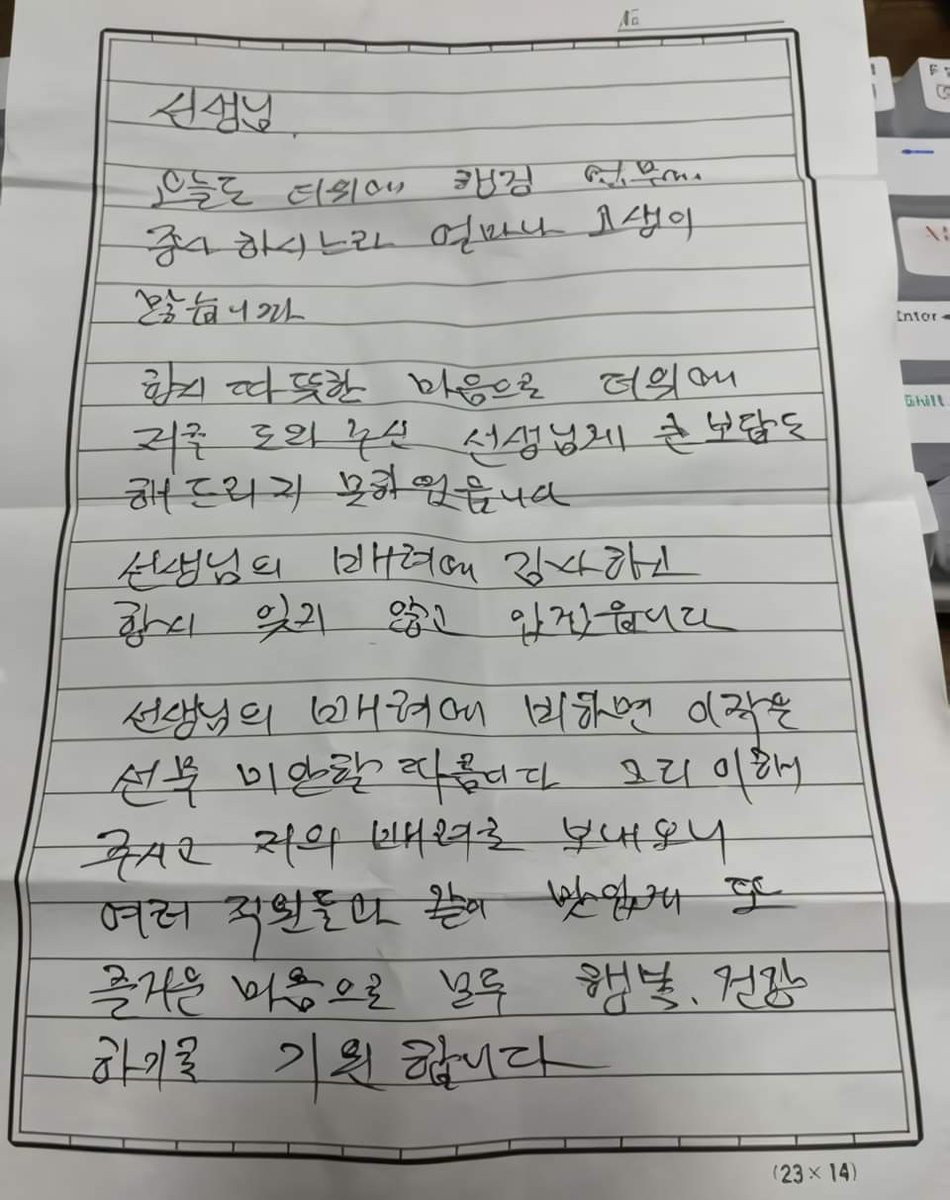 No
선생님.
오늘도 더위에 행정 업무에
종사 하시느라 얼마나 고생이
많습니까
항시 따뜻한 마음으로 더위에
저를 도와 주신 선생님게 큰 보답도
해 드리지 못하였읍니다
선생님의 배려에 감사하고
항시 잊지 않고 있겠읍니다
선생님의 배려에 비하면 이작은
선물 미안할 따름이다 그리 이해
주시고 저의 배려로 보내오니
여러 직원들과 같이 맛있게 또
즐거운 마음으로 모두 행복, 건강
하기를 기원 합니다
(23 × 14)
Enter
Shift